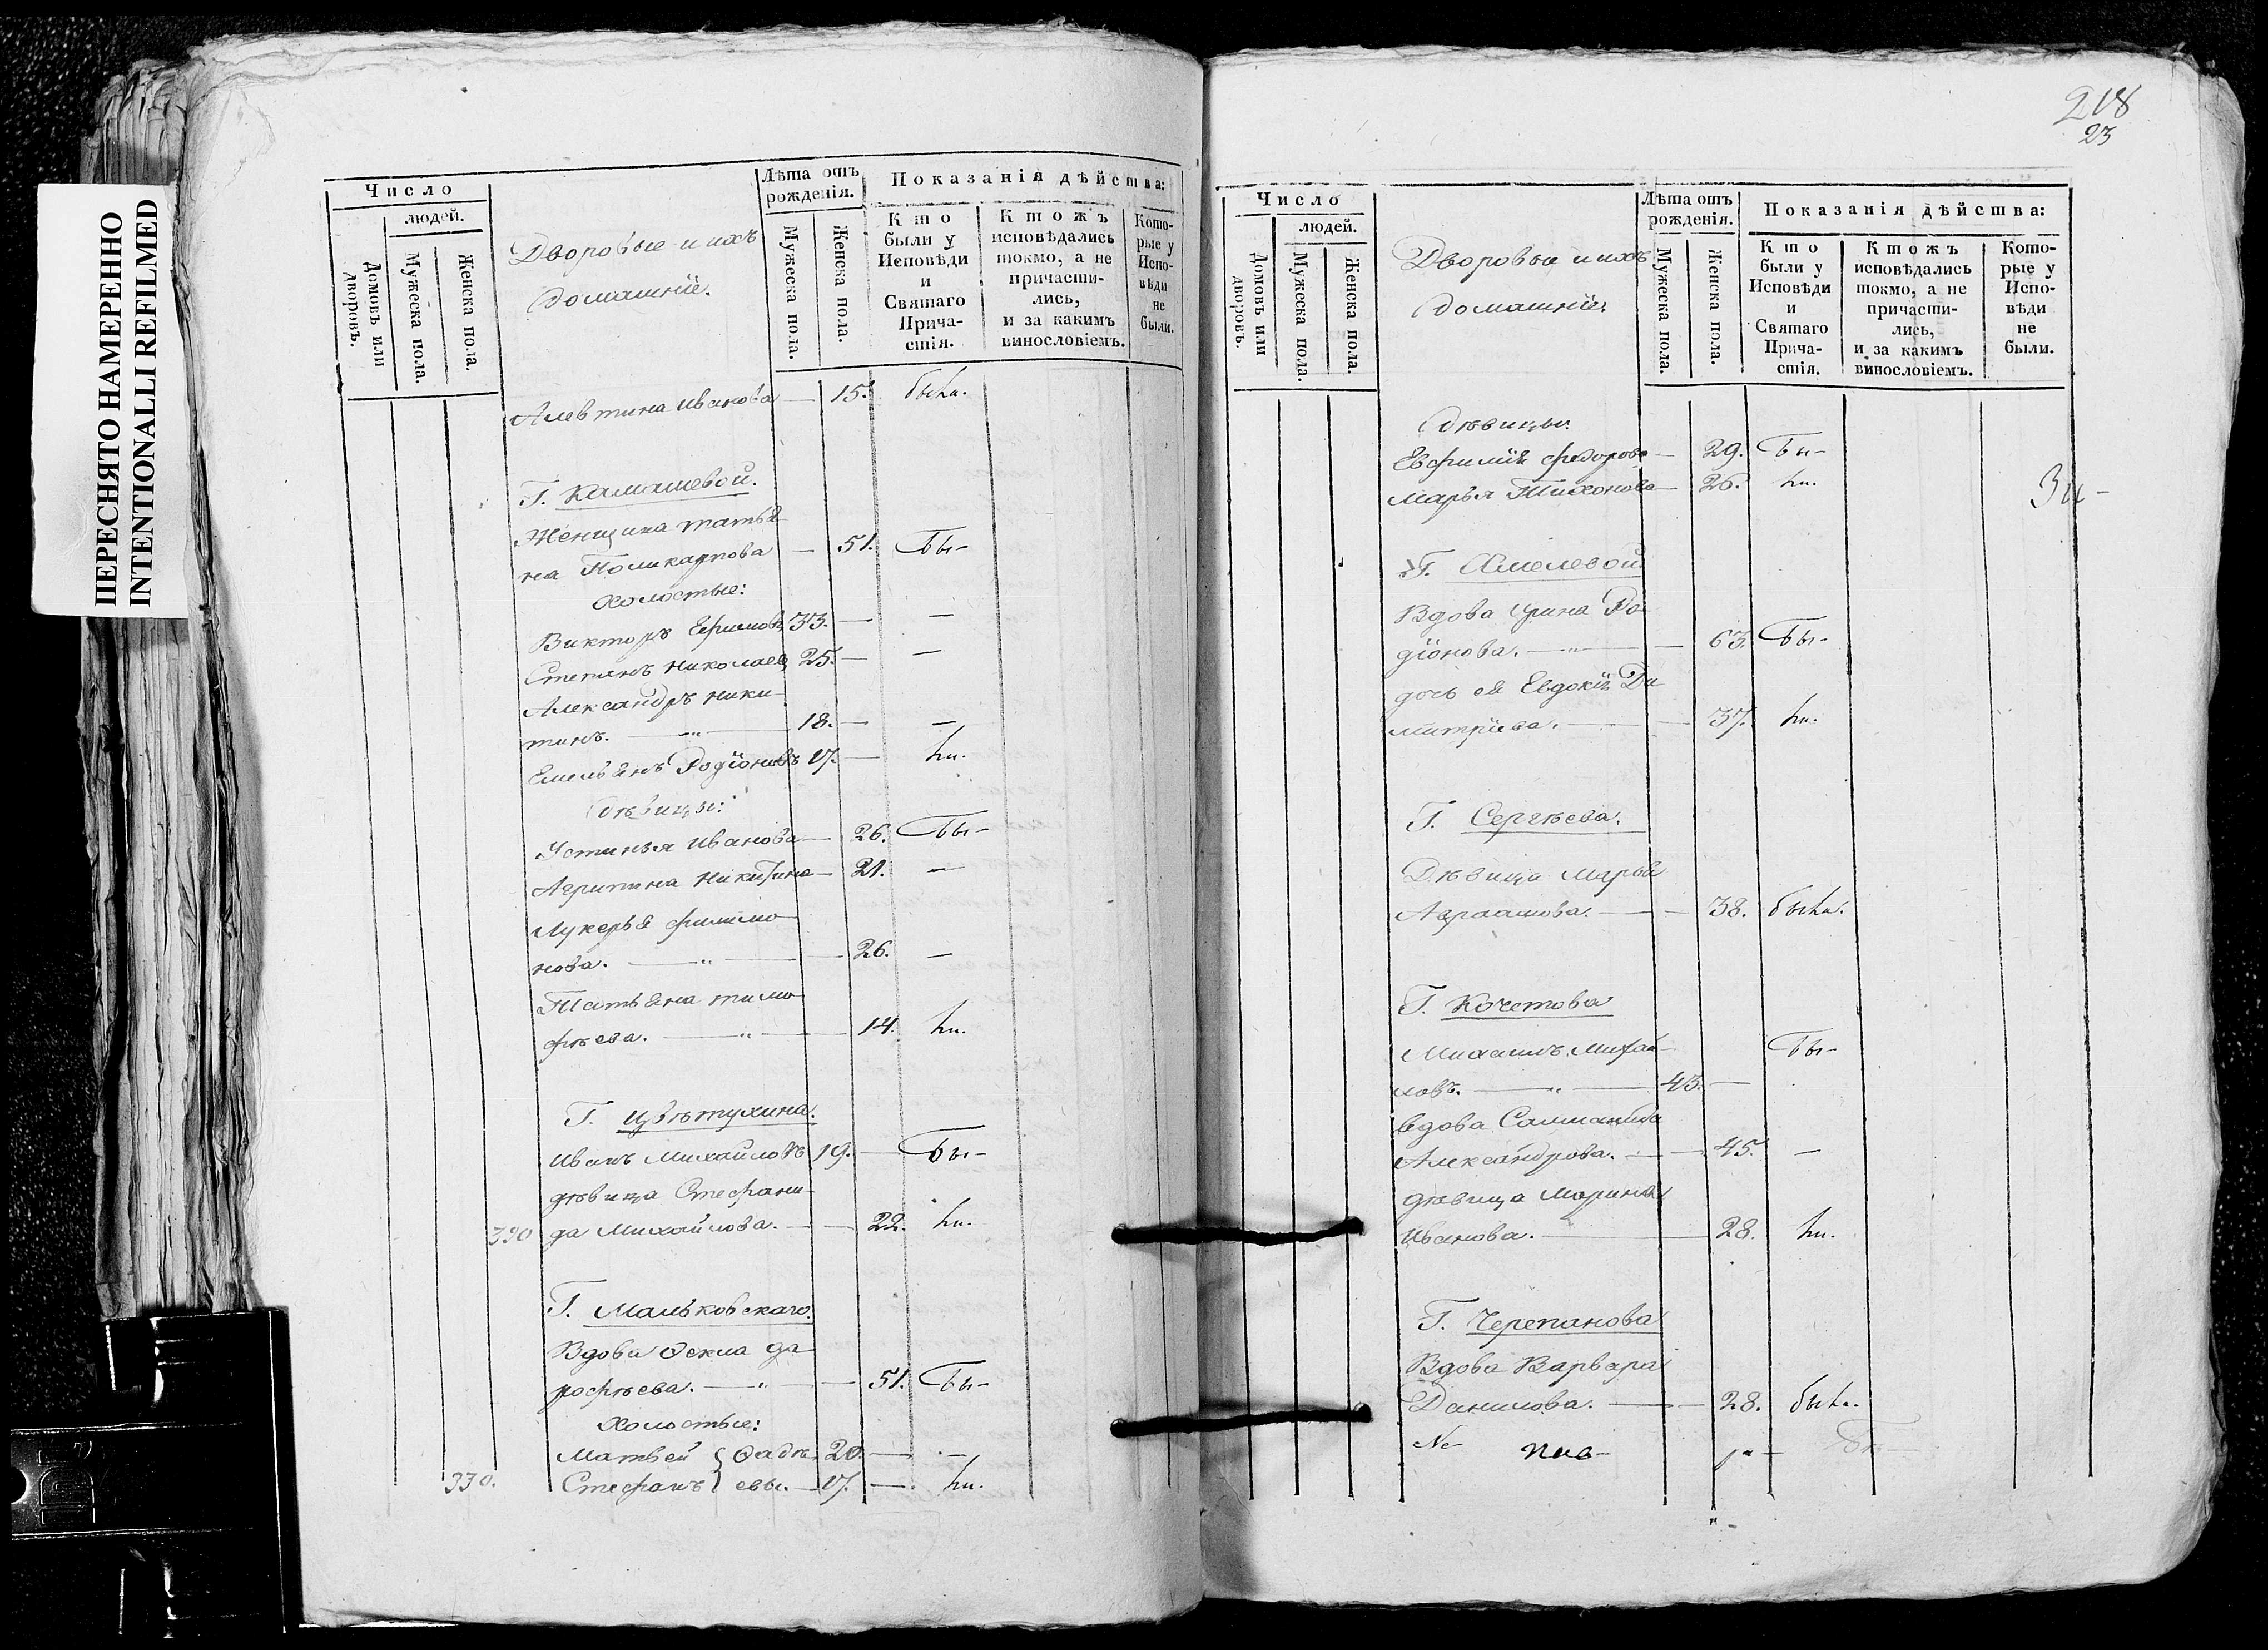 ПЕРЕСНЯТО НАМЕРЕННО
INTENTIONALLI REFILMED
Число
людей.
Домовъ или дворовъ.
Мужеска пола.
Женска пола.
Дворовые и ихъ
домашніе.
Лѣта отъ
рожденія.
Мужеска пола.
Женска пола.
Показанія дѣйства:
Кто
были у
Исповѣди
и
Святаго
Прича-
стія.
Ктожъ
исповѣдались
токмо, а не
причасти-
лись,
и за какимъ
винословіемъ.
Кото-
рые у
Испо-
вѣди
не
были.
Алевтина Иванова — 15. была.
Г. Камашевой.
Женщина Татья-
на Поликарпова — 51. Бы-
Холостые:
Викторъ Ефимовъ 33. — —
Степанъ Николаев 25. — —
Александръ Ники-
тинъ. — 18. — —
Емельянъ Родіоновъ 17. — ли.
Дѣвицы:
Устинья Иванова — 26. Бы-
Агрипина Никитина — 21. —
Лукерья Филимо-
нова. — 26. —
Татьяна Тимо-
фѣева. — 14. ли.
Г. Цвѣтухина.
Иванъ Михайловъ 19. — Бы-
дѣвица Стефани-
390 да Михайлова. — 22. ли.
Г. Мальковскаго.
Вдова Фекла До-
рофѣева. — 51. Бы-
Холостые:
Матвей } Фадѣ- 20. — —
330. Стефанъ } евы. — 17. — ли.
218
23
Число
людей.
Домовъ или дворовъ.
Мужеска пола.
Женска пола.
Дворовые и ихъ
домашніе
Лѣта отъ
рожденія.
Мужеска пола.
Женска пола.
Показанія дѣйства:
Кто
были у
Исповѣди
и
Святаго
Прича-
стія.
Ктожъ
исповѣдались
токмо, а не
причасти-
лись,
и за какимъ
винословіемъ.
Кото-
рые у
Испо-
вѣди
не
были.
Дѣвицы:
Евфимія Федорова — 29. Бы-
Марья Тихонова — 26. ли.
Г. Хмелевой.
Вдова Ирина Ро-
діонова. — 63. Бы-
дочь ея Евдокія Ди-
митріева. — 37. ли.
Г. Сергѣева.
Дѣвица Марья
Авраамова. — 38. была.
Г. Кочетова
Михаилъ Михай- Бы-
ловъ. — 43. —
вдова Саломанида
Александрова. — 45. —
дѣвица Марина
Иванова. — 28. ли.
Г. Черепанова
Вдова Варвара
Данилова. — 28. была.